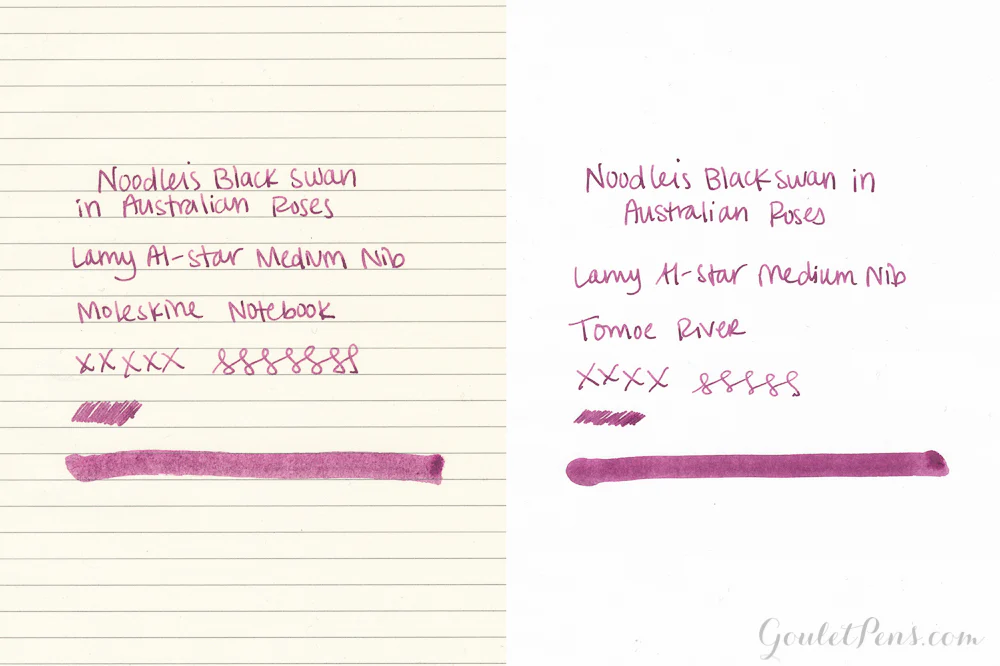 Noodler's Black Swan
in Australian Roses
Lamy Al-star Medium Nib
Moleskine Notebook
xxxxx SSSSSSS
Noodler's Black Swan in
Australian Roses
Lamy Al-star Medium Nib
Tomoe River
xxxx SSSSS
GouletPens.com